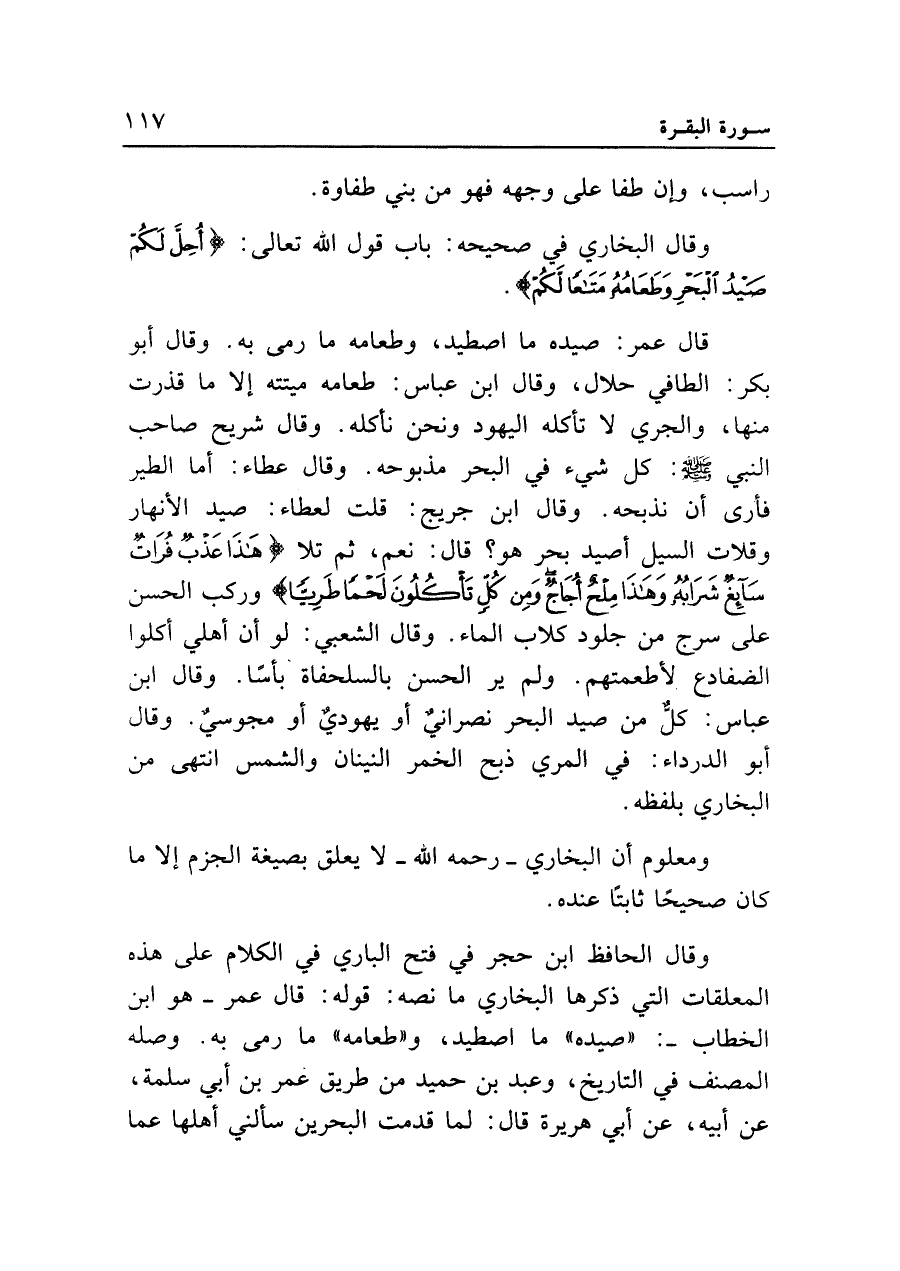 سـورة البقـرة ١١٧
راسب، وإن طفا على وجهه فهو من بني طفاوة.
وقال البخاري في صحيحه: باب قول الله تعالى: ﴿أُحِلَّ لَكُمْ
صَيْدُ ٱلْبَحْرِ وَطَعَامُهُۥ مَتَٰعًا لَّكُمْ﴾.
قال عمر: صيده ما اصطيد، وطعامه ما رمى به. وقال أبو
بكر: الطافي حلال، وقال ابن عباس: طعامه ميتته إلا ما قذرت
منها، والجري لا تأكله اليهود ونحن نأكله. وقال شريح صاحب
النبي ﷺ: كل شيء في البحر مذبوحه. وقال عطاء: أما الطير
فأرى أن نذبحه. وقال ابن جريج: قلت لعطاء: صيد الأنهار
وقلات السيل أصيد بحر هو؟ قال: نعم، ثم تلا ﴿هَٰذَا عَذْبٌ فُرَاتٌ
سَآئِغٌ شَرَابُهُۥ وَهَٰذَا مِلْحٌ أُجَاجٌ ۖ وَمِن كُلٍّ تَأْكُلُونَ لَحْمًا طَرِيًّا﴾ وركب الحسن
على سرج من جلود كلاب الماء. وقال الشعبي: لو أن أهلي أكلوا
الضفادع لأطعمتهم. ولم ير الحسن بالسلحفاة بأسًا. وقال ابن
عباس: كلٌّ من صيد البحر نصرانيٌ أو يهوديٌ أو مجوسيٌ. وقال
أبو الدرداء: في المري ذبح الخمر النينان والشمس انتهى من
البخاري بلفظه.
ومعلوم أن البخاري ـ رحمه الله ـ لا يعلق بصيغة الجزم إلا ما
كان صحيحًا ثابتًا عنده.
وقال الحافظ ابن حجر في فتح الباري في الكلام على هذه
المعلقات التي ذكرها البخاري ما نصه: قوله: قال عمر ـ هو ابن
الخطاب ـ: «صيده» ما اصطيد، و«طعامه» ما رمى به. وصله
المصنف في التاريخ، وعبد بن حميد من طريق عمر بن أبي سلمة،
عن أبيه، عن أبي هريرة قال: لما قدمت البحرين سألني أهلها عما